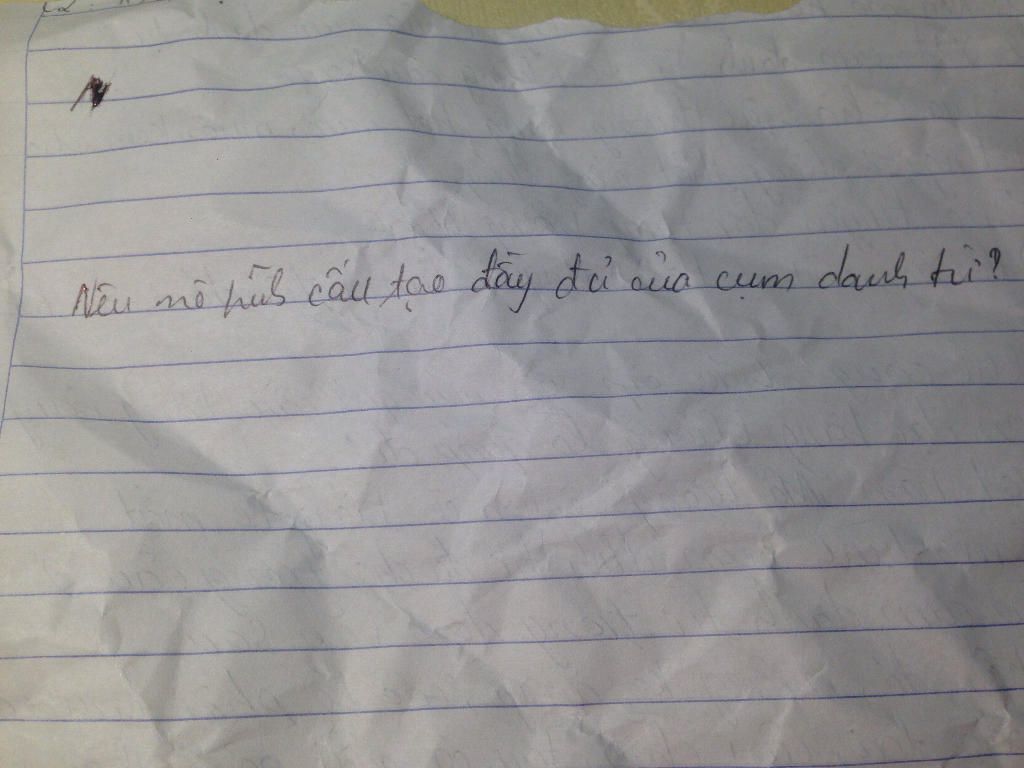 Nêu mô hình cấu tạo đầy đủ của cụm danh từ?